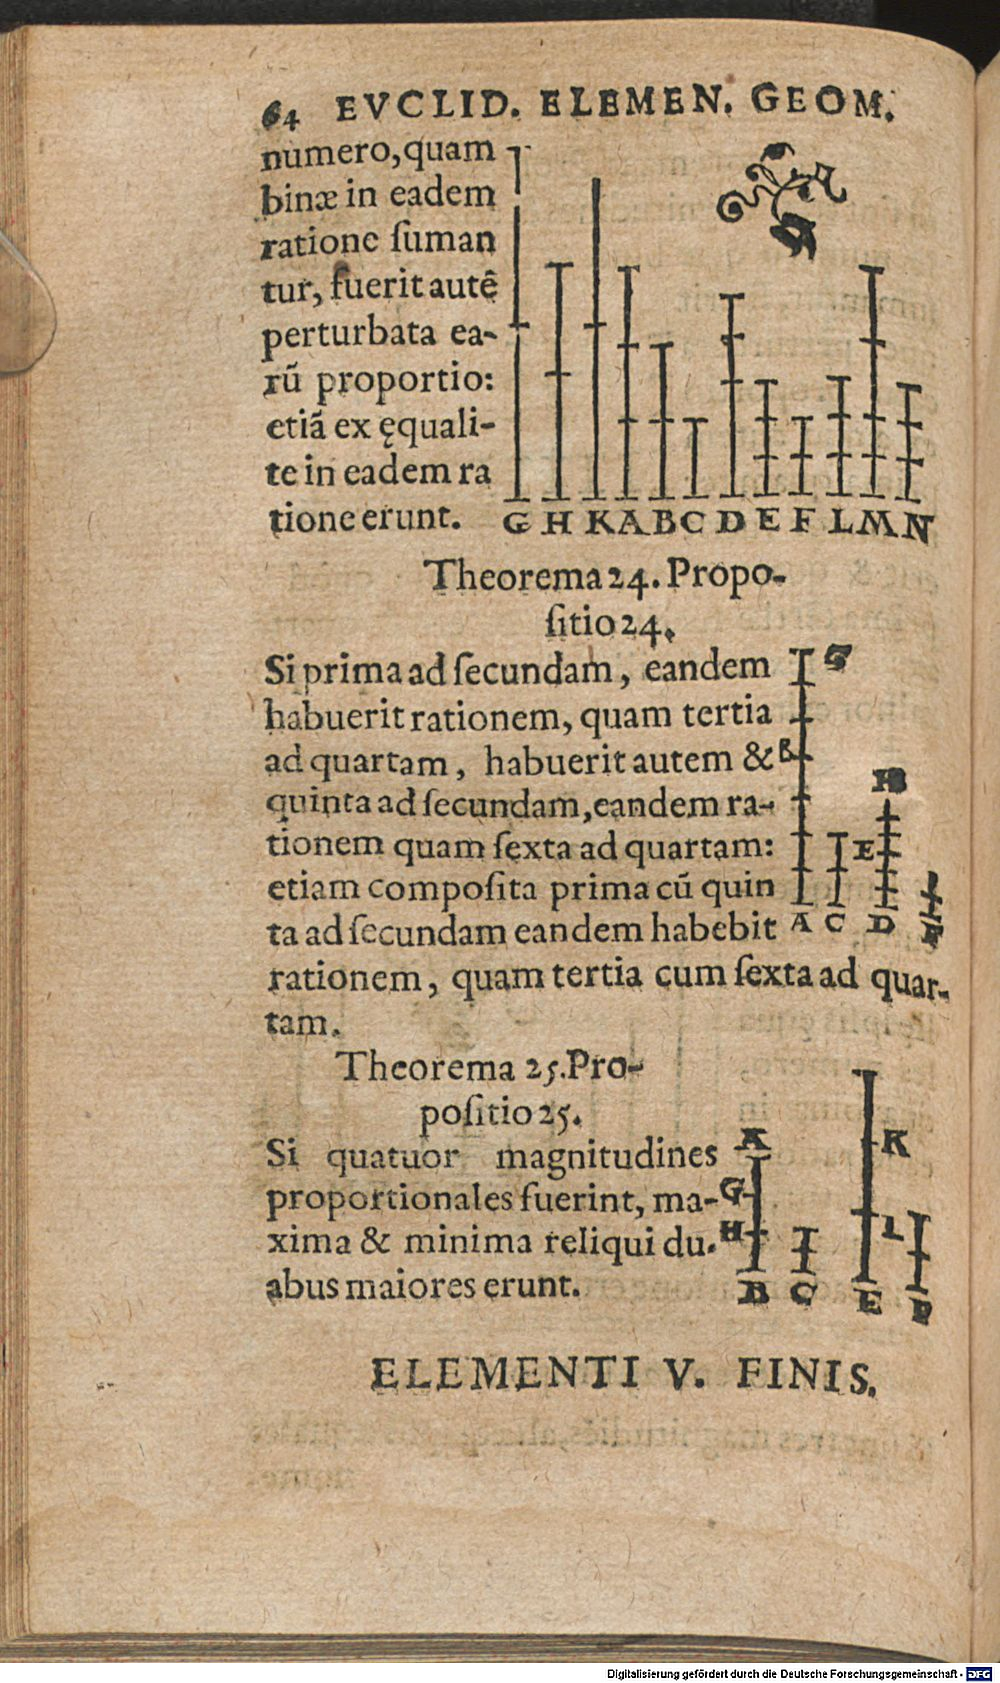 64 EVCLID. ELEMEN. GEOM.
numero, quam
binæ in eadem
ratione ſuman
tur, fuerit autẽ
perturbata ea-
rũ proportio:
etiã ex ęquali-
te in eadem ra
tione erunt.
G H K A B C D E F L M N
Theorema 24. Propo-
ſitio 24.
Si prima ad ſecundam, eandem
G
habuerit rationem, quam tertia
ad quartam, habuerit autem &
B
quinta ad ſecundam, eandem ra-
H
tionem quam ſexta ad quartam:
E
etiam compoſita prima cũ quin
ta ad ſecundam eandem habebit
A C D F
rationem, quam tertia cum ſexta ad quar-
tam.
Theorema 25. Pro-
poſitio 25.
Si quatuor magnitudines
A
K
proportionales fuerint, ma-
G
xima & minima reliqui du-
H
L
abus maiores erunt.
B C E F
ELEMENTI V. FINIS.
Digitalisierung gefördert durch die Deutsche Forschungsgemeinschaft - DFG